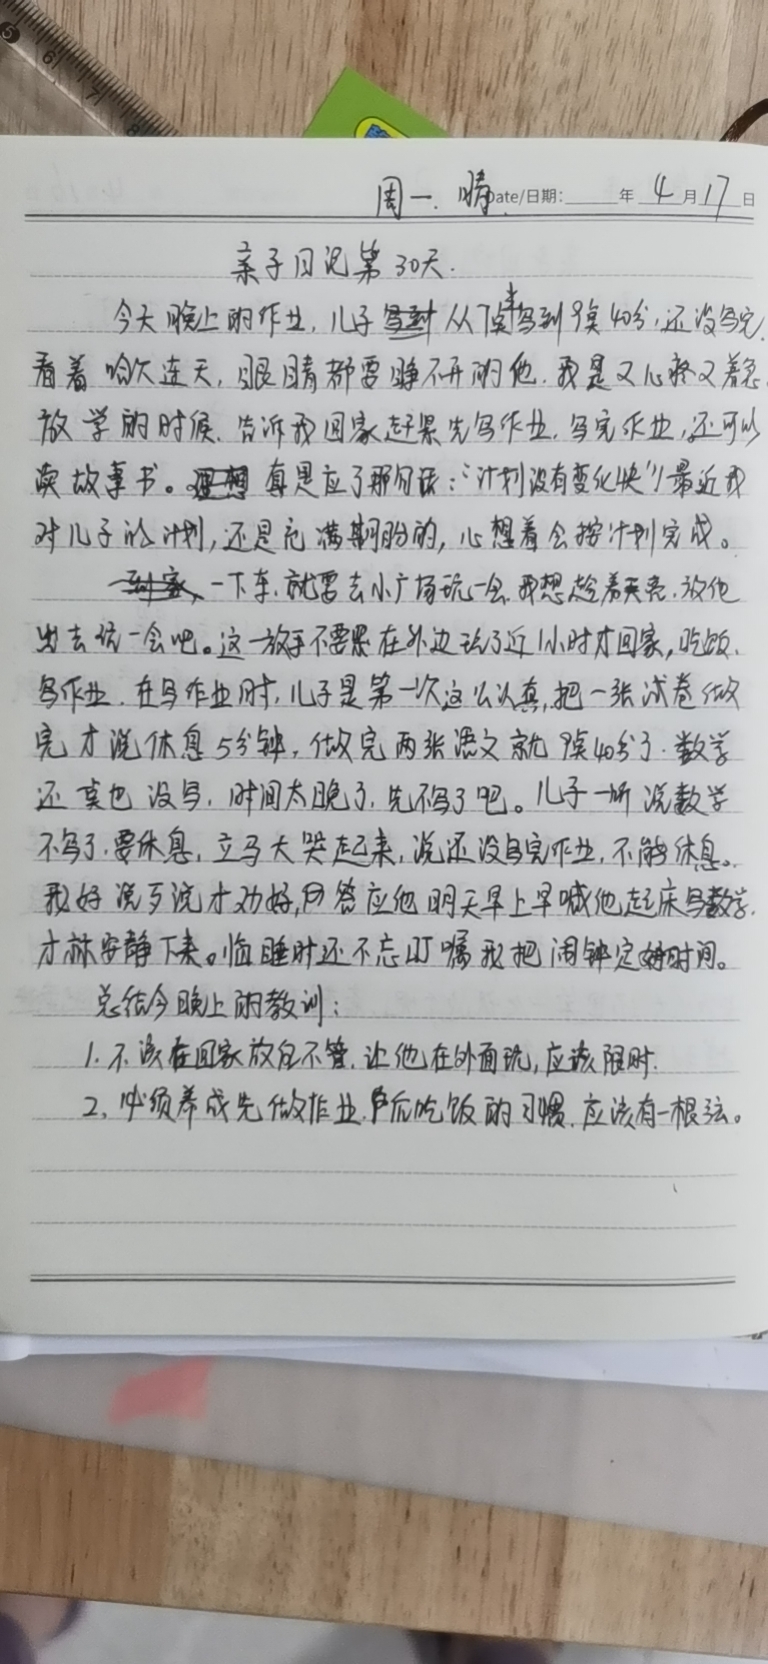 周一. 晴. Date/日期: 年 4 月 17 日
亲子日记第30天.
今天晚上的作业, 儿子从7点半写到9点40分, 还没写完,
看着哈欠连天, 眼睛都要睁不开的他. 我是又心疼又着急.
放学的时候. 告诉我回家赶紧先写作业. 写完作业, 还可以
读故事书。真是应了那句话:“计划没有变化快”! 最近我
对儿子的计划, 还是充满期盼的, 心想着会按计划完成。
一下车, 就要去小广场玩一会. 我想趁着天亮. 放他
出去玩一会吧。这一放手不要紧在外边玩了近1小时才回家, 吃饭.
写作业. 在写作业时, 儿子是第一次这么认真, 把一张试卷做
完才说休息5分钟, 做完两张语文就9点40分了. 数学
还一点也没写, 时间太晚了, 先不写了吧。儿子一听说数学
不写了. 要休息, 立马大哭起来, 说还没写完作业, 不能休息。
我好说歹说才劝好, 答应他明天早上早喊他起床写数学.
才安静下来。临睡时还不忘叮嘱我把闹钟定好时间。
总结今晚上的教训:
1. 不该在回家放包不管. 让他在外面玩, 应该限时.
2, 必须养成先做作业, 后吃饭的习惯. 应该有一根弦。
5 6 7 8